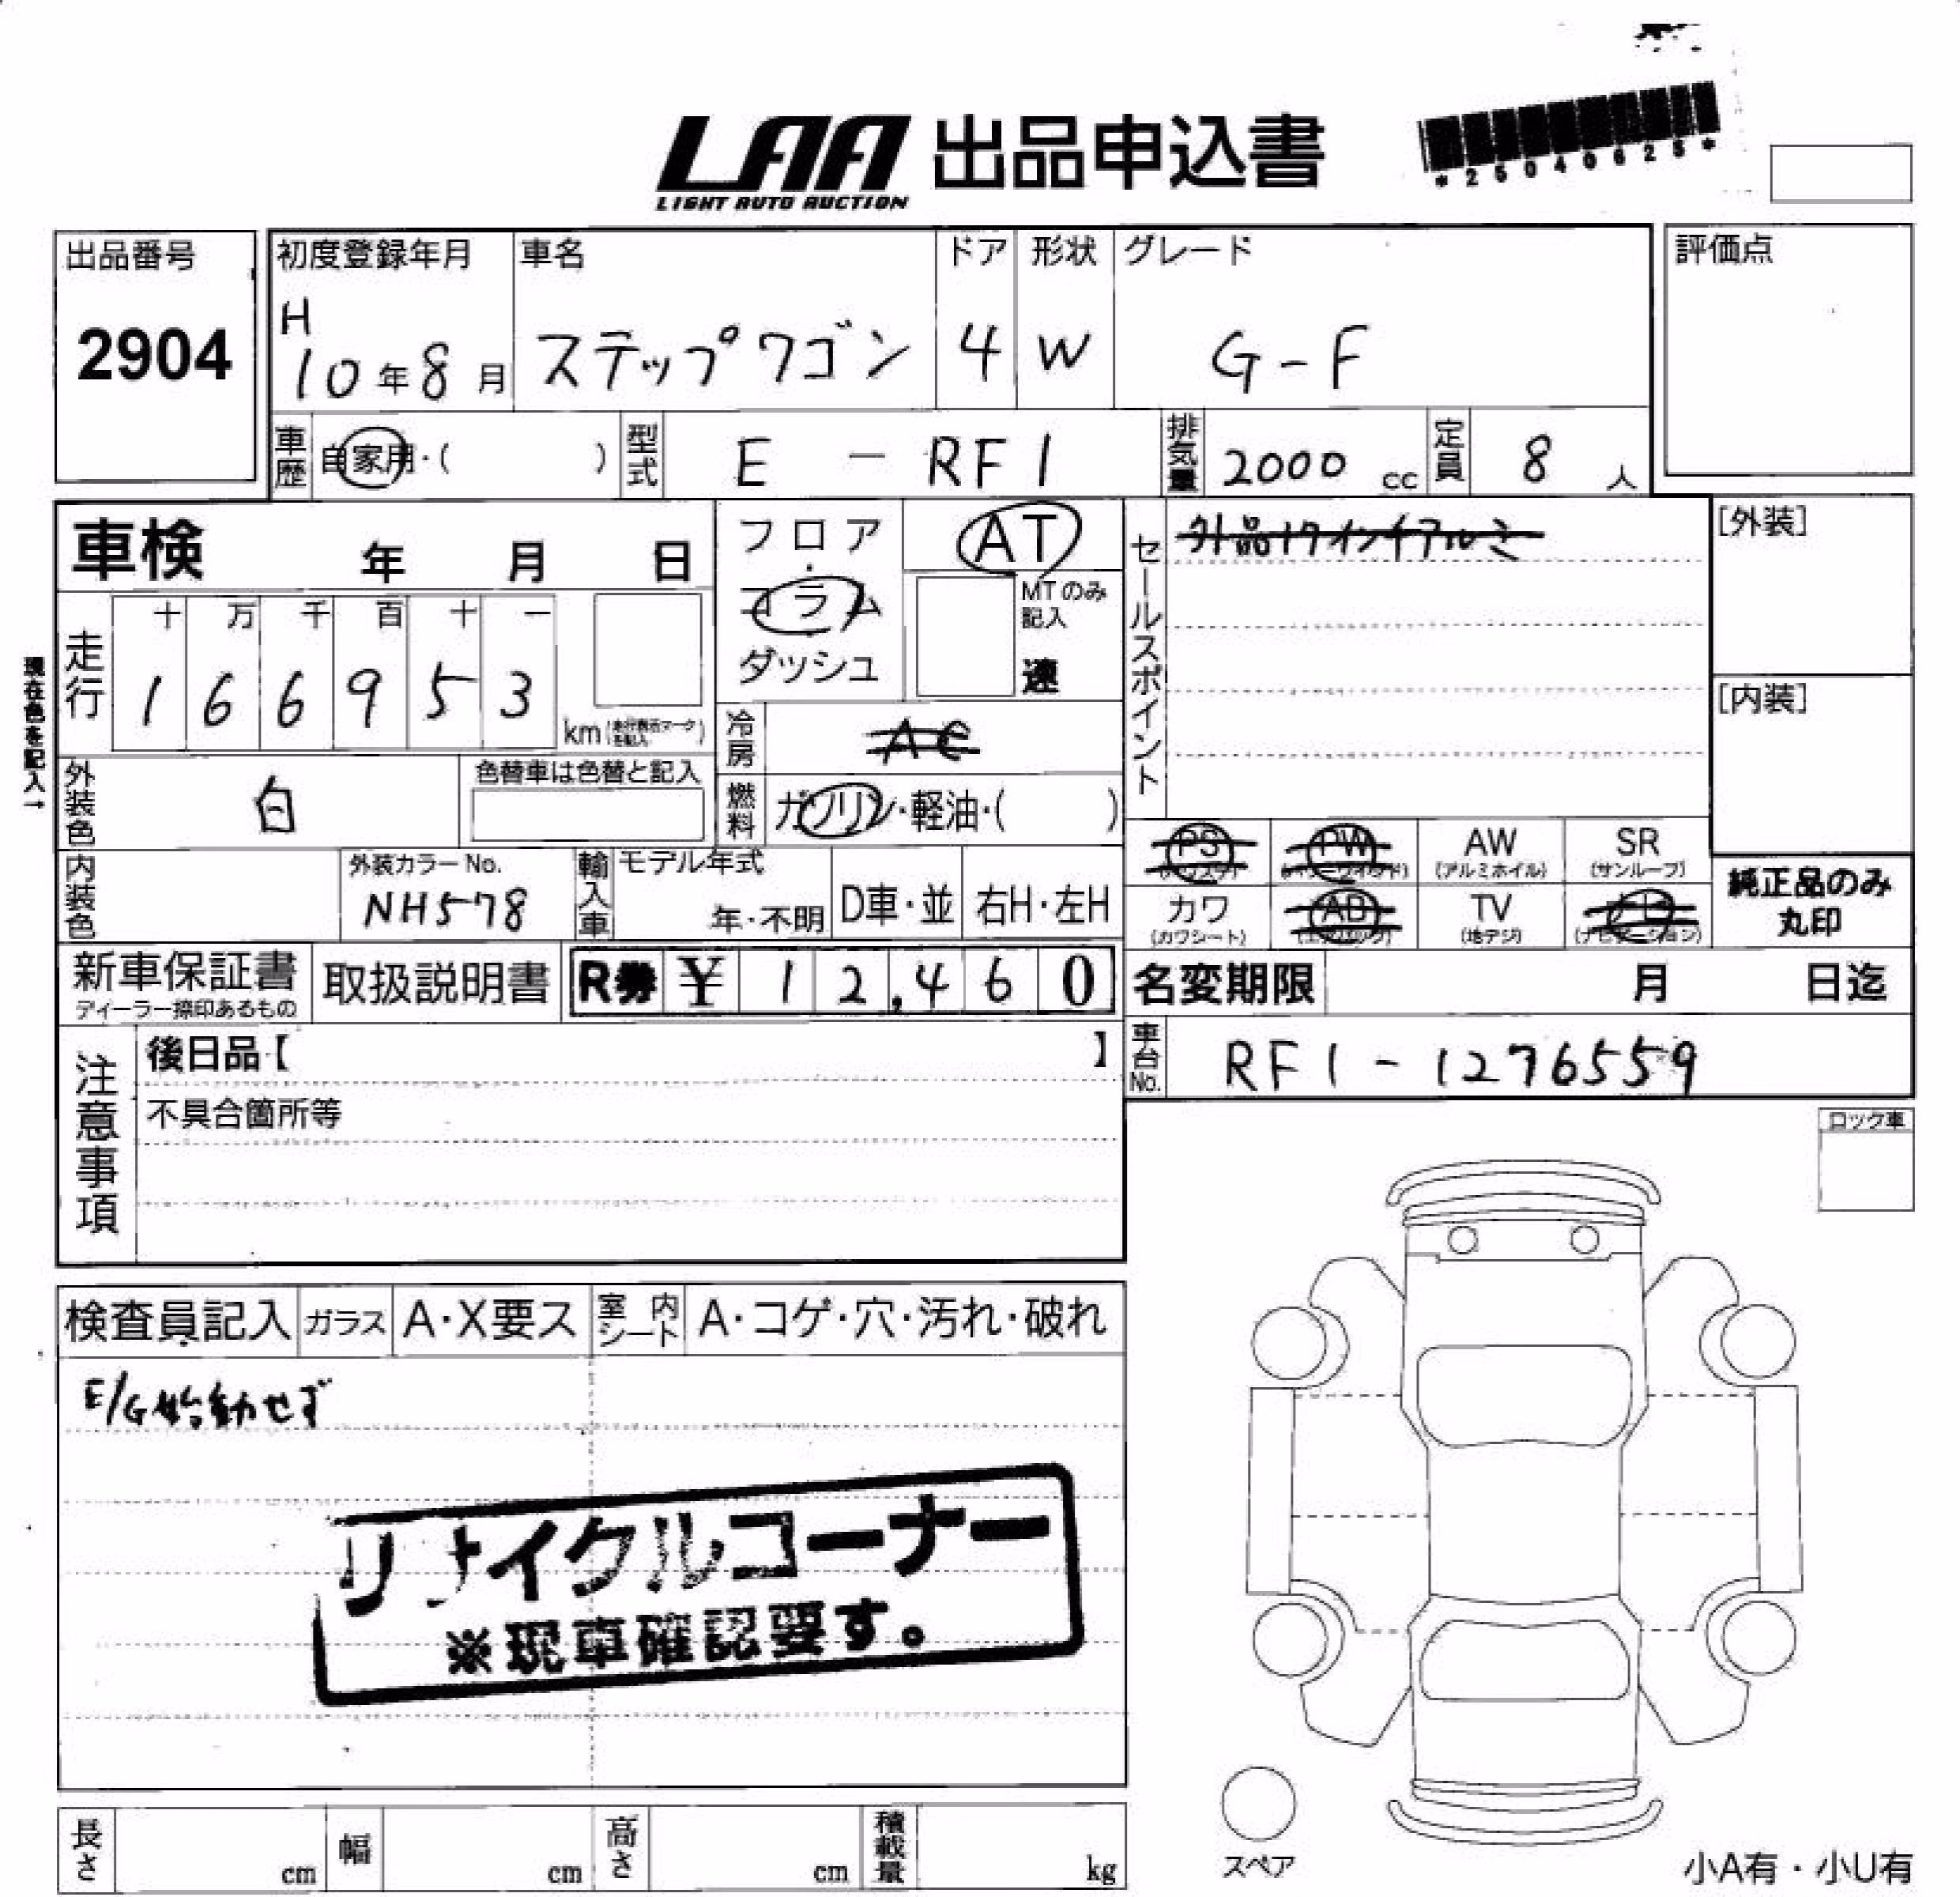 LAA 出品申込書
LIGHT AUTO AUCTION
*25040625*
出品番号
2904
初度登録年月
H
10年8月
車名
ステップワゴン
ドア
4
形状
W
グレード
G-F
評価点
車歴
自家用・( )
型式
E - RF1
排気量
2000 cc
定員
8 人
車検 年 月 日
フロア
・
コラム
・
ダッシュ
AT
MTのみ
記入
速
セールスポイント
外品17インチアルミ
[外装]
[内装]
現在色を記入→
走行
十 万 千 百 十 一
1 6 6 9 5 3
km(走行表示マークを記入)
冷房
AC
外装色
白
色替車は色替と記入
燃料
ガソリン・軽油・( )
内装色
外装カラーNo.
NH578
輸入車
モデル年式
年・不明
D車・並
右H・左H
PS
(パワステ)
PW
(パワーウインド)
AW
(アルミホイル)
SR
(サンルーフ)
カワ
(カワシート)
AB
(エアバック)
TV
(地デジ)
(ナビゲーション)
純正品のみ
丸印
新車保証書
ディーラー捺印あるもの
取扱説明書
R券 ¥ 12,460
名変期限 月 日迄
車台No.
RF1-1276559
注意事項
後日品【 】
不具合箇所等
ロック車
検査員記入
ガラス
A・X要ス
室内シート
A・コゲ・穴・汚れ・破れ
E/G始動せず
リサイクルコーナー
※現車確認要す。
長さ cm
幅 cm
高さ cm
積載量 kg
スペア
小A有・小U有